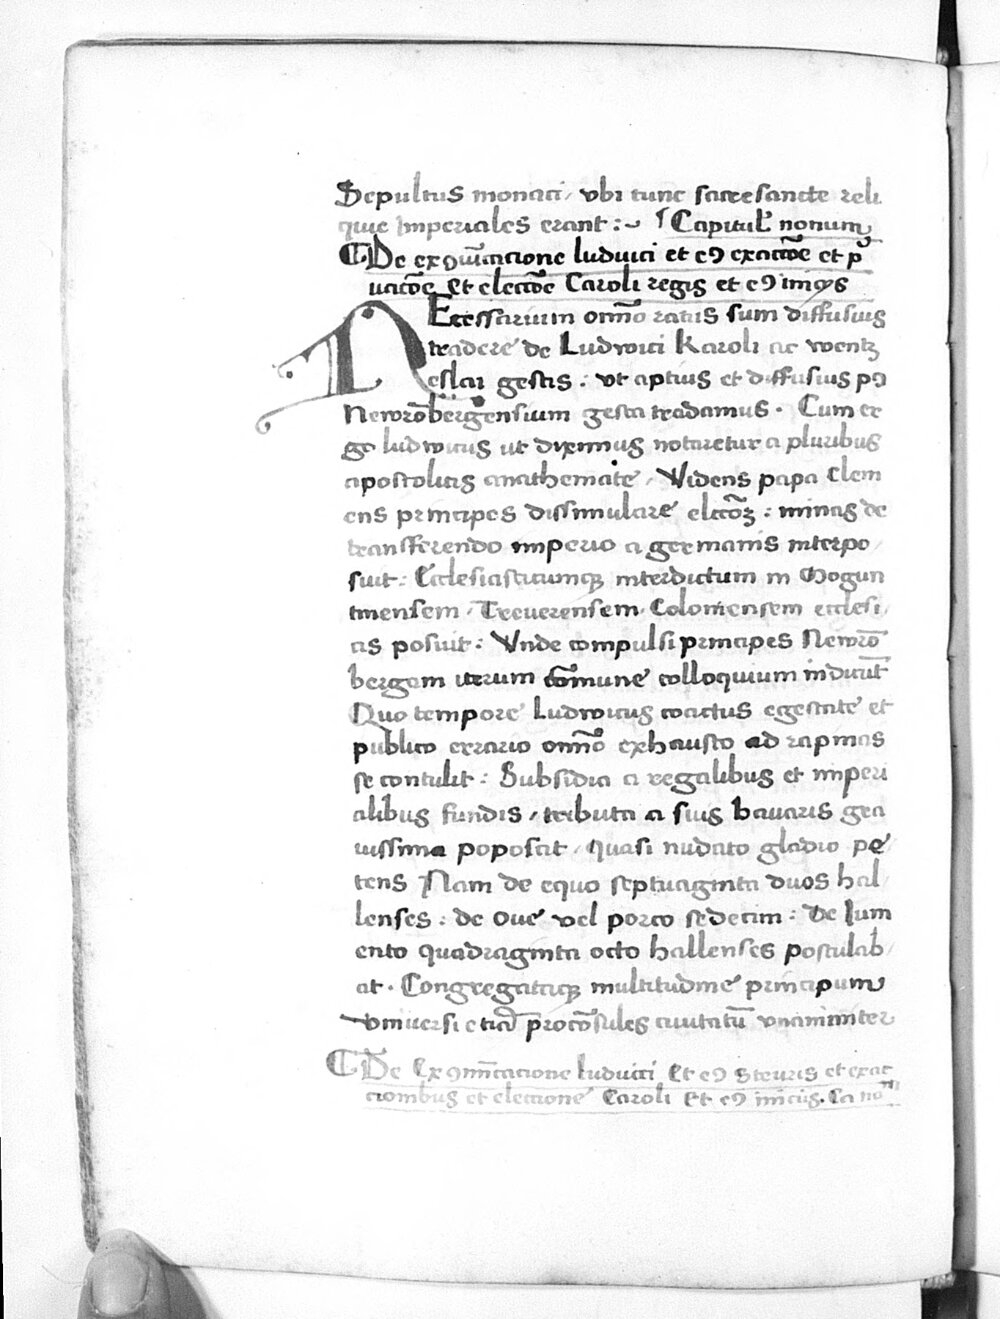 Sepultus monaci / vbi tunc sacresancte reli
quie Imperiales erant :~ Capitul nonum
De exco͞mu͞icacione luduici et eꝯ exacco͞e et p
uaco͞e Et elecco͞e Caroli regis et eꝯ imicꝯs
NEcessarium om͞o ratus sum diffusius
tradere de Ludwici Karoli ac wentz
eslai gestis : vt aptius et diffusius pꝯ
Newro͞bergensium gesta tradamus . Cum er
go ludwicus ut diximus notaretur a pluribus
apostolicis anathemate / Videns papa Clem
ens principes dissimulare electo͞ꝝ : minas de
transferendo imperio a germanis interpo
suit : Ecclesiasticumqꝫ interdictum in Mogun
tinensem / Treuerensem / Coloniensem ecclesi
as posuit : Vnde compulsi principes Newro͞
bergam iterum co͞mune colloquium indicu͞t
Quo tempore Ludwicus coactus egestate et
publico erario om͞o exhausto ad rapinas
se contulit : Subsidia a regalibus et imperi
alibus fundis / tributa a suis bauaris gra
uissima poposcit / quasi nudato gladio pe
tens Nam de equo septuaginta duos hal
lenses : de oue vel porco sedecim : De Ium
ento quadraginta octo hallenses postulab
at . Congregataqꝫ multitudine principum
vniuersi etia͞ proco͞sules ciuitatu͞ vnanimiter
De Exꝯmu͞icacione luduici Et eꝯ steuris et exac
cionibus et eleccione Caroli Et eꝯ inicijs . Ca noᵐ